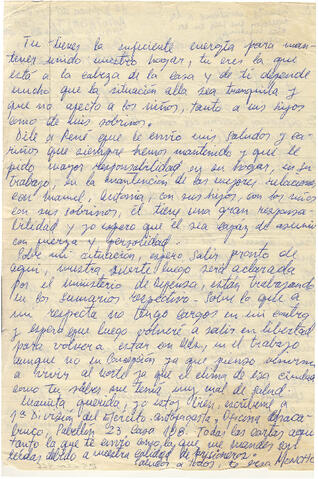 Tu tienes la suficiente energía para man-
tener unido nuestro hogar, tu eres la que
está a la cabeza de la casa y de ti depende
mucho que la situación alla sea tranquila y
que no afecte a los niños, tanto a mis hijos
como de mis sobrinos.
Dile a René que le envio mis saludos y ca-
riños que siempre hemos mantenido y que le
pido mayor responsabilidad en su hogar, en su
trabajo, en la mantención de las mejores relaciones
con manuel, Victoria, con sus hijos, con los niños
con sus sobrinos, el tiene una gran responsa-
bilidad y yo espero que él sea capaz de asumir
con fuerza y
Sobre mi situación, espero salir pronto de
aqui, nuestra suerte luego será aclarada
por el ministerio de Defensa, están trabajando
en los sumarios respectivo - Sobre lo que a
mi respecta no tengo cargos en mi contra
y espero que luego volveré a salir en libertad
para volver a estar en Uds, en el trabajo
aunque no en Concepción ya que pienso
a vivir al norte ya que el clima de esa ciudad
como tu sabes que tenía muy mal de salud.
Mamita querida, yo estoy bien, escribeme a
1ª División del Ejercito - Antofagasta, Oficina
Pabellón 23 Casa 18B. Todas las cartas aqui
tanto la que te envio como la que me mandes son
leidas debido a nuestra calidad de prisioneros.
Saludos a todos, tu